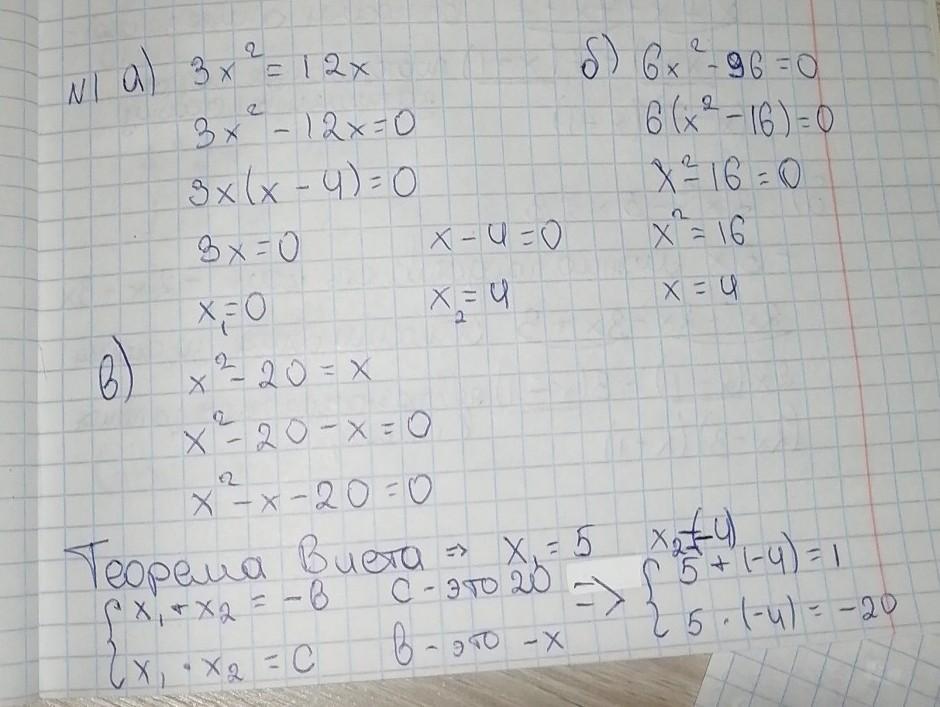 N1 а) 3x² = 12x
3x² - 12x = 0
3x(x - 4) = 0
3x = 0 x - 4 = 0
x₁ = 0 x₂ = 4
б) 6x² - 96 = 0
6(x² - 16) = 0
x² - 16 = 0
x² = 16
x = 4
в) x² - 20 = x
x² - 20 - x = 0
x² - x - 20 = 0
Теорема Виета ⇒ x₁ = 5 x₂ = (-4)
{ x₁ + x₂ = -в с - это 20 => { 5 + (-4) = 1
{ x₁ · x₂ = c в - это -x { 5 · (-4) = -20